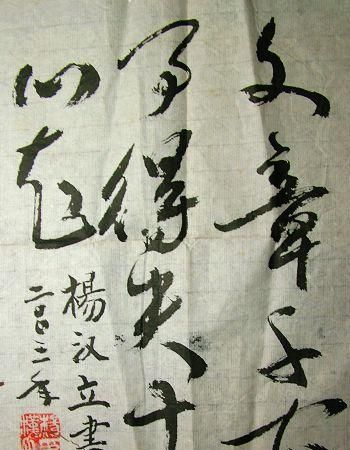 文章千古
事得失寸
心知
楊汉立書
二〇〇三年